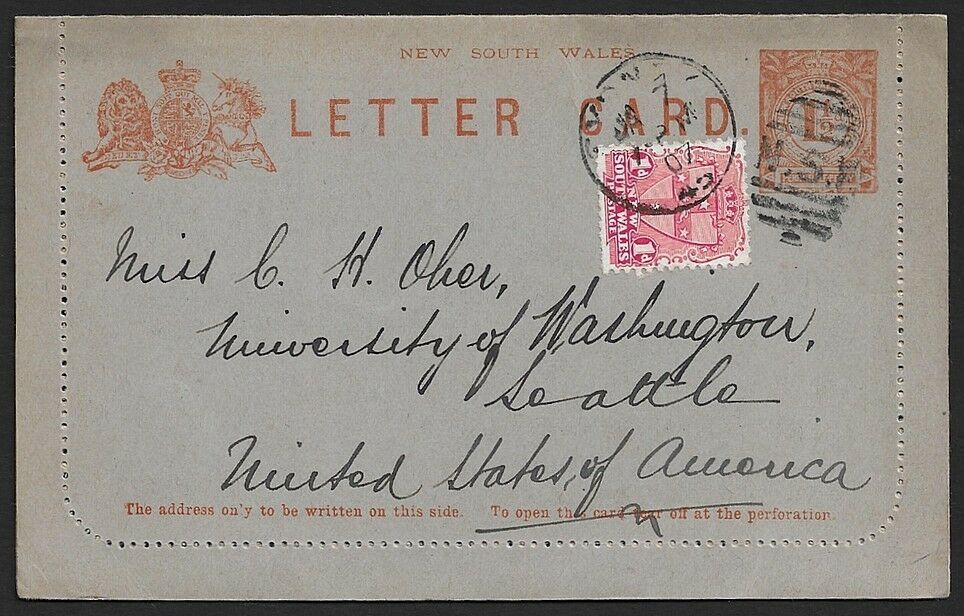 NEW SOUTH WALES
LETTER CARD.
1d NEW 1d
SOUTH WALES
POSTAGE
7
07
Miss C. H. Ober,
University of Washington,
Seattle
United States of America
The address on'y to be written on this side. To open this card tear off at the perforation.